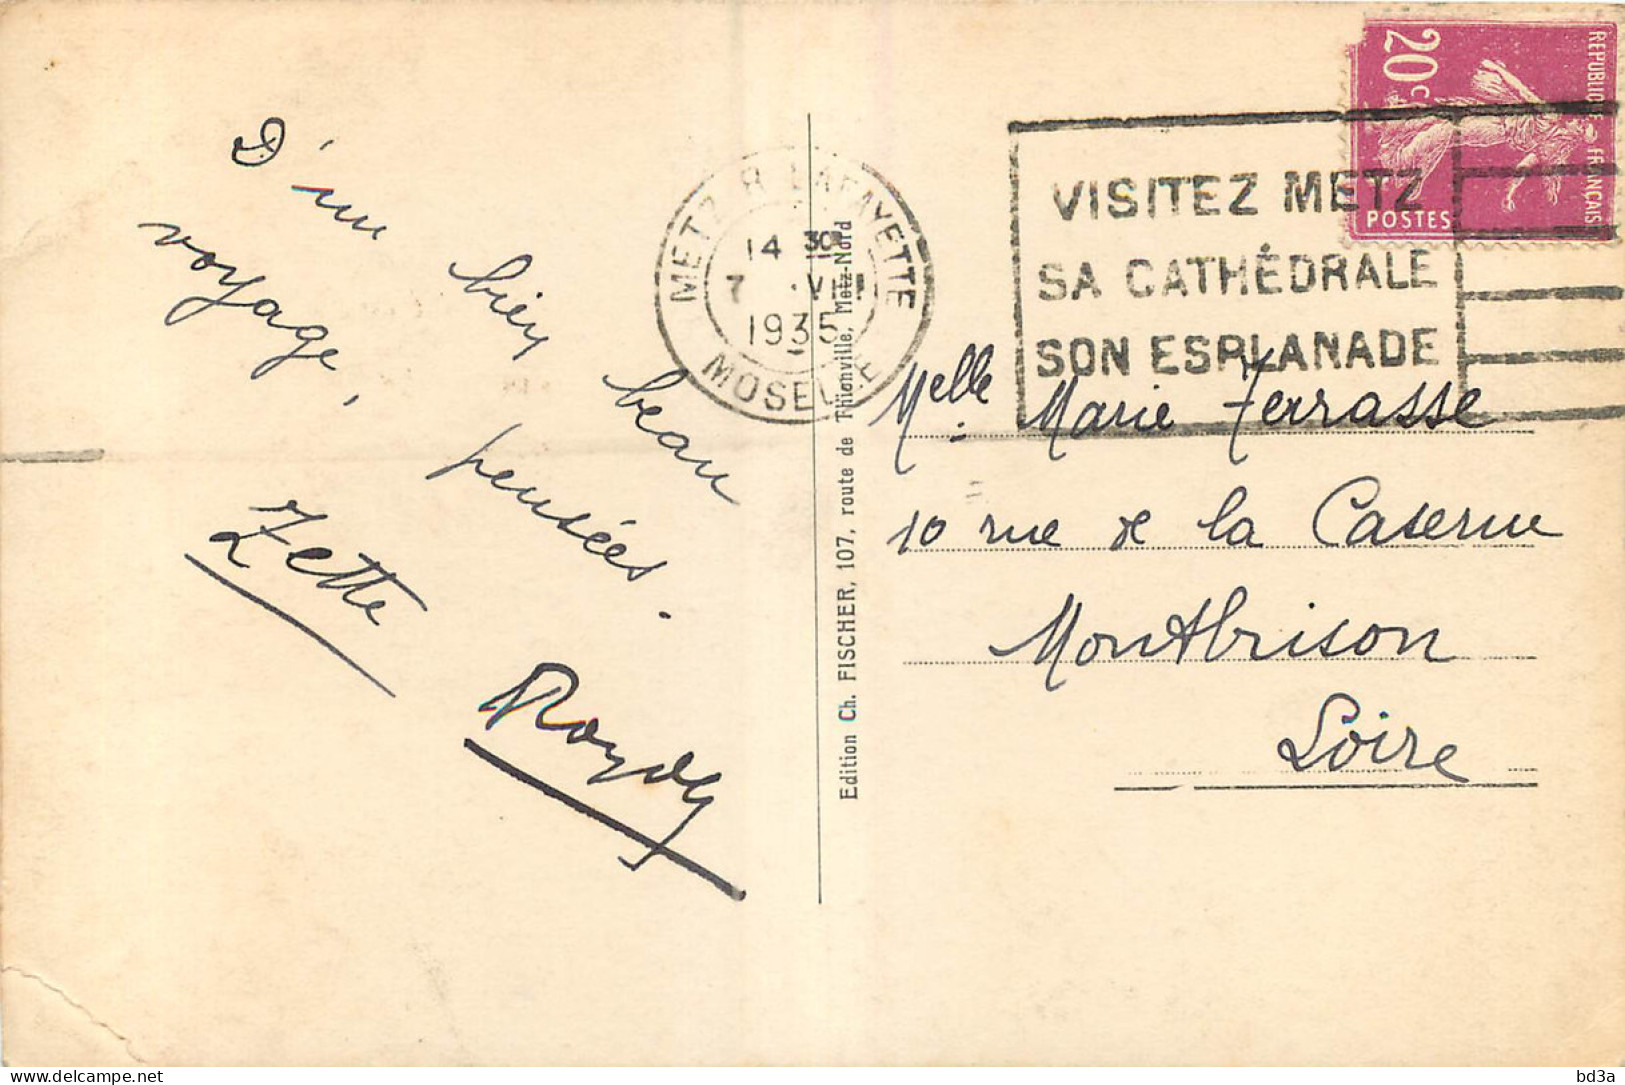 D'un bien beau
voyage,
pensées.
Zette
METZ R. LAFAYETTE
14 30
7 VII
1935
MOSELLE
VISITEZ METZ
SA CATHÉDRALE
SON ESPLANADE
20c.
REPUBLIQUE FRANÇAISE
POSTES
Edition Ch. FISCHER, 107, route de Thionville, Metz-Nord
Melle. Marie Terrasse
10 rue de la Caserne
Montbrison
Loire
bd3a
delcampe.net